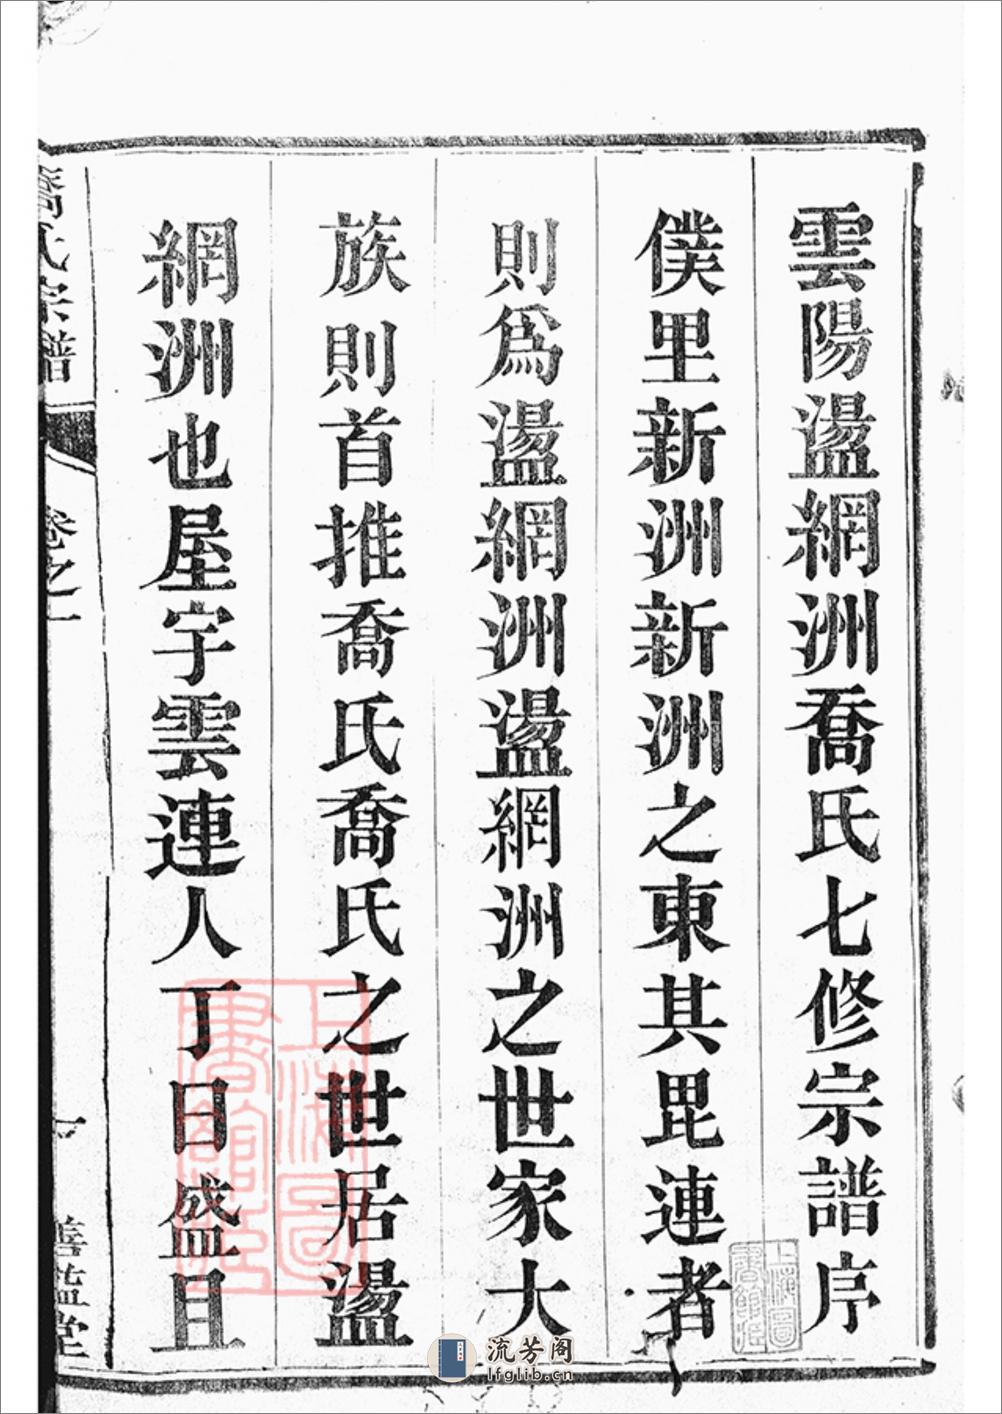 雲陽盪網洲喬氏七修宗譜序
僕里新洲新洲之東其毘連者
則爲盪網洲盪網洲之世家大
族則首推喬氏喬氏之世居盪
網洲也屋宇雲連人丁日盛且
喬氏宗譜
卷之一
一
善㽀堂
上海圖書館藏
上海圖書館藏
流芳阁
lfglib.cn